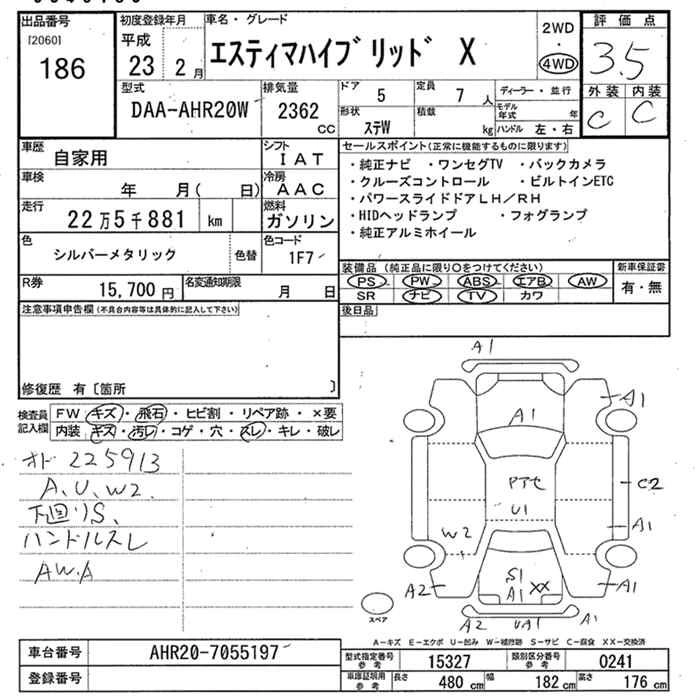 出品番号
[2060]
186
初度登録年月
平成
23 2月
車名・グレード
エスティマハイブリッド X
2WD
4WD
評価点
3.5
外装 内装
C C
型式
DAA-AHR20W
排気量
2362
CC
ドア
5
定員
7 人
形状
ステW
積載
kg
ディーラー・並行
モデル年式 年
ハンドル 左・右
車歴
自家用
シフト
IAT
車検
年 月( 日)
冷房
AAC
走行
22万5千881 km
燃料
ガソリン
色
シルバーメタリック
色替
色コード
1F7
R券
15,700 円
名変通知期限
月 日
セールスポイント(正常に機能するものに限ります)
・純正ナビ ・ワンセグTV ・バックカメラ
・クルーズコントロール ・ビルトインETC
・パワースライドドアLH/RH
・HIDヘッドランプ ・フォグランプ
・純正アルミホイール
装備品(純正品に限り○をつけてください)
新車保証書
PS PW ABS エアB AW
SR ナビ TV カワ
有・無
後日品
注意事項申告欄(不具合内容等は具体的に記入して下さい)
修復歴 有〔箇所 〕
検査員
記入欄
FW キズ・飛石・ヒビ割・リペア跡・×要
内装 キズ・汚レ・コゲ・穴・スレ・キレ・破レ
オド 225913
A、U、W2、
下回リS、
ハンドルスレ
AW.A
A1
A1
A1
C2
A1
A1
A1
A2
UA1
A2
W2
U1
S1
A1
XX
スペア
A-キズ E-エクボ U-凹み W-補修跡 S-サビ C-腐食 XX-交換済
車台番号
AHR20-7055197
登録番号
型式指定番号
参考
15327
類別区分番号
参考
0241
車庫証明用
参考
長さ
480 cm
幅
182 cm
高さ
176 cm